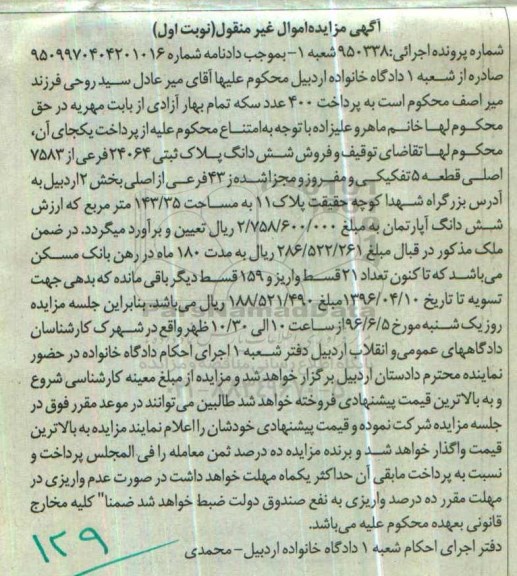 آگهی مزایده اموال غیر منقول(نوبت اول)
شماره پرونده اجرائی:۹۵۰۳۳۸ شعبه ۱- بموجب دادنامه شماره ۹۵۰۹۹۷۰۴۰۴۲۰۱۰۱۶
صادره از شعبه ۱ دادگاه خانواده اردبیل محکوم علیها آقای میر عادل سید روحی فرزند
میر اصف محکوم است به پرداخت ۴۰۰ عدد سکه تمام بهار آزادی از بابت مهریه در حق
محکوم لها خانم ماهرو علیزاده با توجه به امتناع محکوم علیه از پرداخت یکجای آن،
محکوم لها تقاضای توقیف و فروش شش دانگ پلاک ثبتی ۲۴۰۶۴ فرعی از ۷۵۸۳
اصلی قطعه ۵ تفکیکی و مفروز و مجزا شده از ۴۳ فرعی از اصلی بخش ۲ اردبیل به
آدرس بزرگراه شهدا کوچه حقیقت پلاک ۱۱ به مساحت ۱۴۲/۳۵ متر مربع که ارزش
شش دانگ آپارتمان به مبلغ ۲/۷۵۸/۶۰۰/۰۰۰ ریال تعیین و برآورد میگردد. در ضمن
ملک مذکور در قبال مبلغ ۲۸۶/۵۲۲/۲۶۱ ریال به مدت ۱۸۰ ماه در رهن بانک مسکن
می‌باشد که تا کنون تعداد ۲۱ قسط واریز و ۱۵۹ قسط دیگر باقی مانده که بدهی جهت
تسویه تا تاریخ ۱۳۹۶/۰۴/۱۰ مبلغ ۱۸۸/۵۲۱/۴۹۰ ریال می‌باشد. بنابراین جلسه مزایده
روز یک شنبه مورخ ۹۶/۶/۵ از ساعت ۱۰ الی ۱۰/۳۰ ظهر واقع در شهرک کارشناسان
دادگاههای عمومی و انقلاب اردبیل دفتر شعبه ۱ اجرای احکام دادگاه خانواده در حضور
نماینده محترم دادستان اردبیل برگزار خواهد شد و مزایده از مبلغ معینه کارشناسی شروع
و به بالاترین قیمت پیشنهادی فروخته خواهد شد طالبین می‌توانند در موعد مقرر فوق در
جلسه مزایده شرکت نموده و قیمت پیشنهادی خودشان را اعلام نمایند مزایده به بالاترین
قیمت واگذار خواهد شد و برنده مزایده ده درصد ثمن معامله را فی المجلس پرداخت و
نسبت به پرداخت مابقی آن حداکثر یکماه مهلت خواهد داشت در صورت عدم واریزی در
مهلت مقرر ده درصد واریزی به نفع صندوق دولت ضبط خواهد شد ضمنا" کلیه مخارج
قانونی بعهده محکوم علیه می‌باشد.
دفتر اجرای احکام شعبه ۱ دادگاه خانواده اردبیل- محمدی
۱۲۹